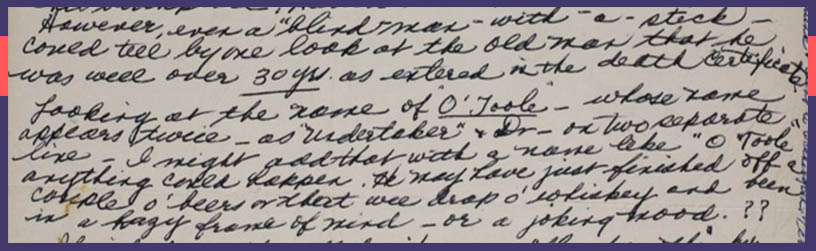 However, even a "blind-man-with-a-stick-
could tell by one look at the old man that he
was well over 30 yrs. as entered in the death certificate
Looking at the name of "O'Toole" - whose name
appears twice - as "undertaker" & Dr - on two separate
line - I might add that with a name like "O'Toole"
anything could happen. He may have just finished off a
couple o' beers or that wee drap o' whiskey and been
in a hazy frame of mind - or a joking mood. ??